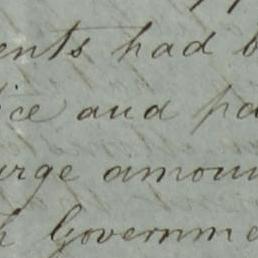 ents had b
ice and pa
urge amoun
h Governme